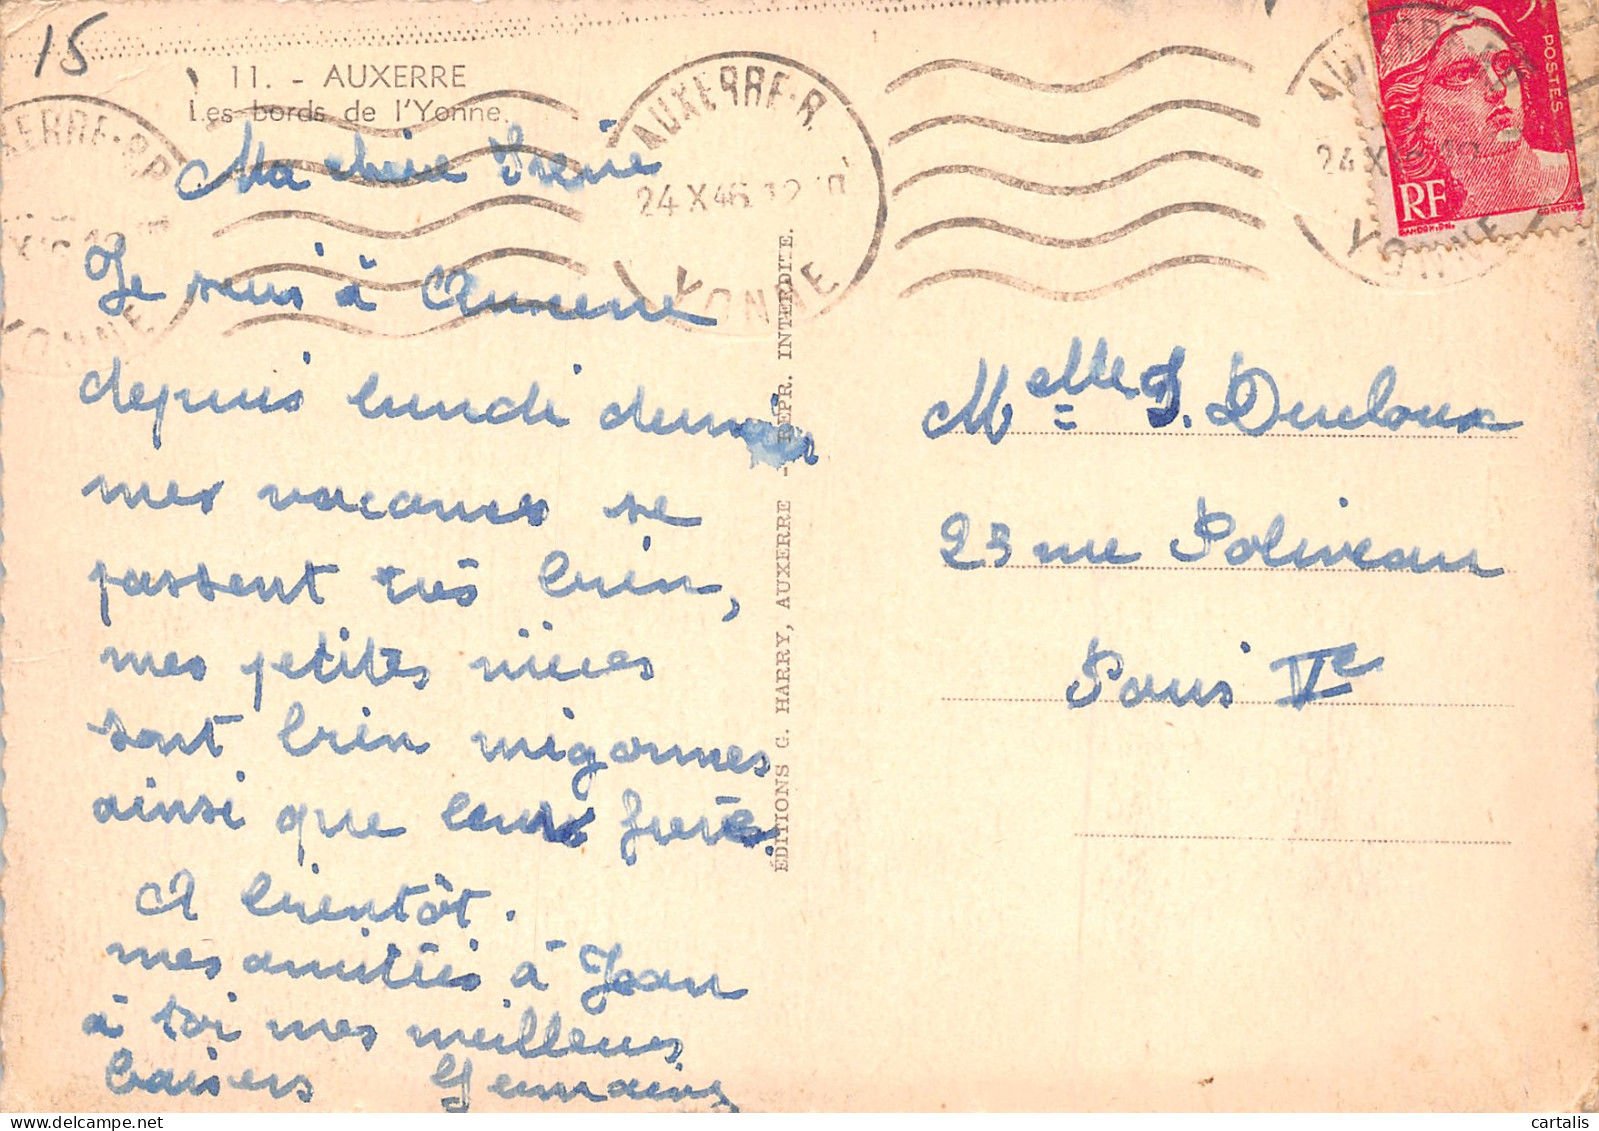 15
11. - AUXERRE
Les bords de l'Yonne.
AUXERRE-R.P.
YONNE
AUXERRE-R.
24 X 46 12
YONNE
24 X
YONNE
POSTES
RF
GANDON. DEL.
CORTOT. SC
Ma chère Irène
Je suis à Auxerre
depuis lundi dernier
mes vacances se
passent très bien,
mes petites nièces
sont bien mignonnes
ainsi que leur frère.
A bientôt.
mes amitiés à Jean
à toi mes meilleurs
baisers Germaine
ÉDITIONS G. HARRY, AUXERRE - REPR. INTERDITE.
Melle I. Ducloux
23 rue Poliveau
Paris Ve
cartalis